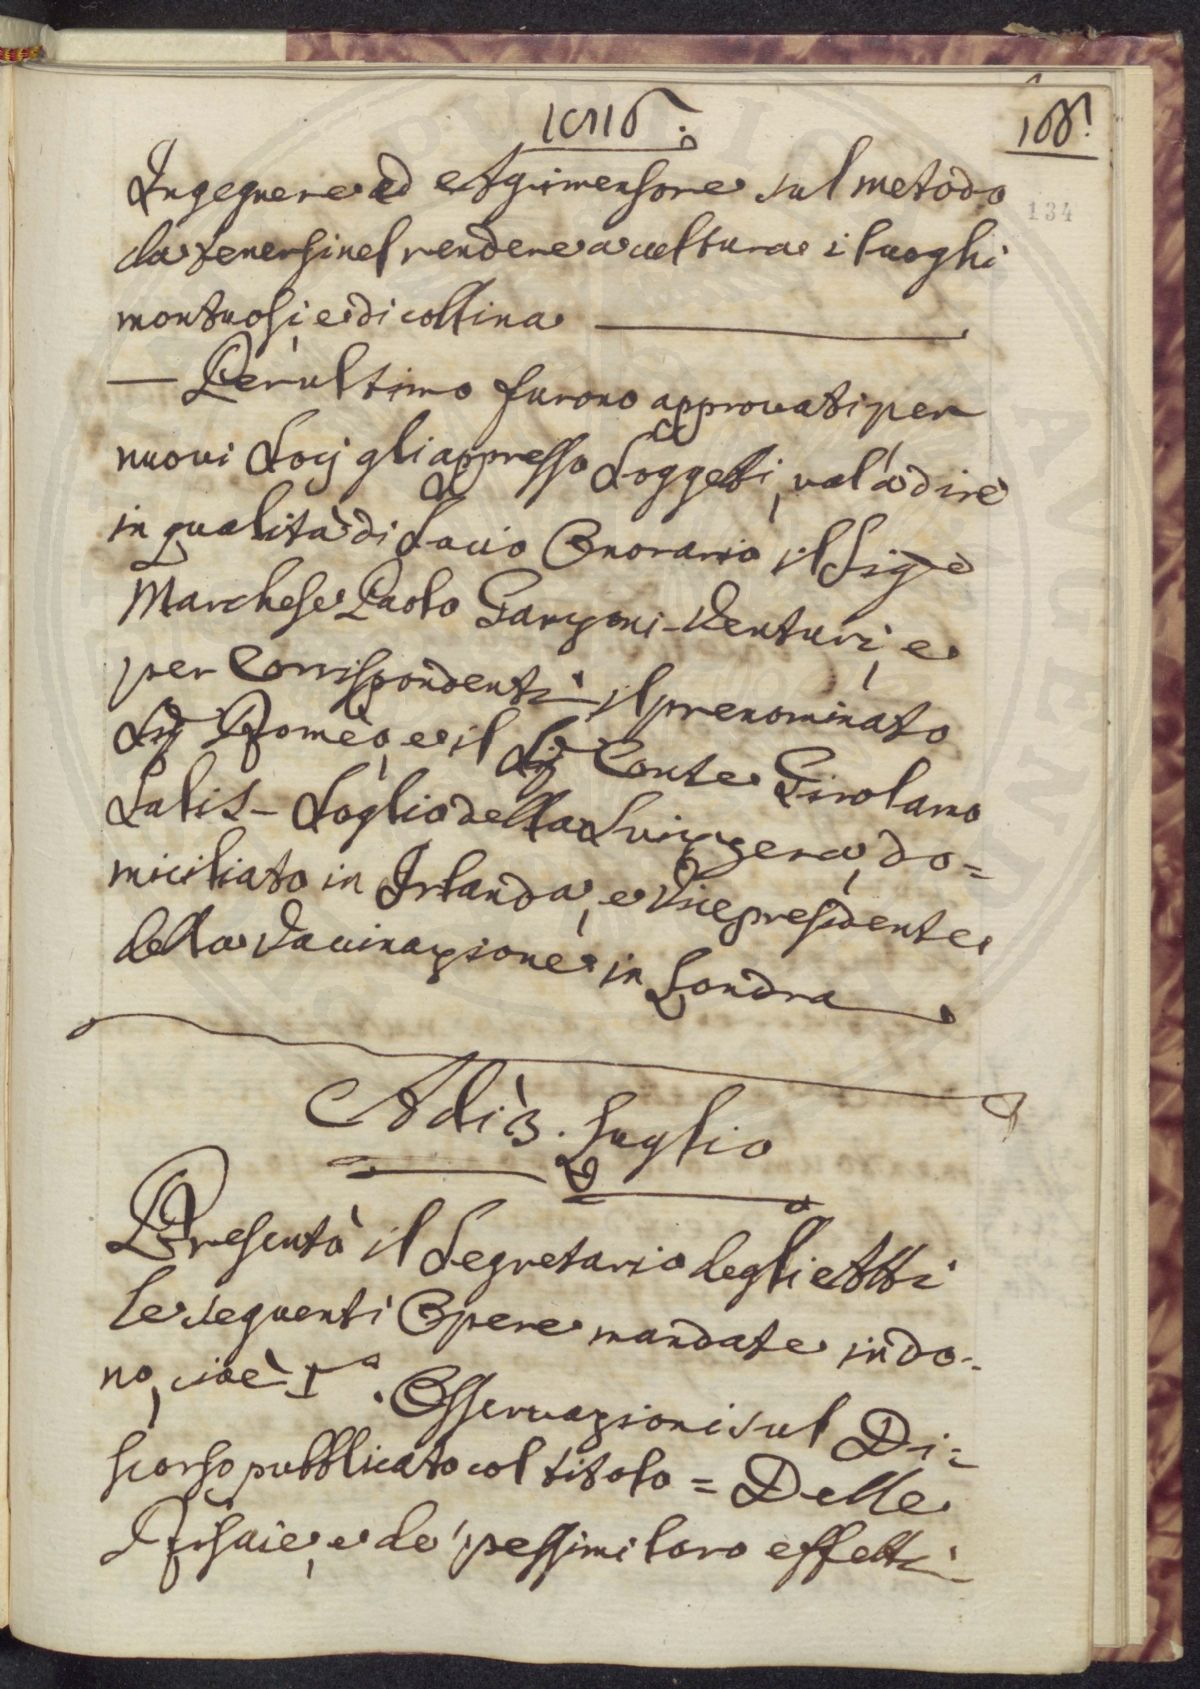 1818.
188.
134
Ingegnere ed Agrimensore sul metodo
da tenersi nel rendere a coltura i luoghi
montuosi e di collina
— Per ultimo furono approvati per
nuovi Socj gli appresso Soggetti, val'a dire
in qualità di Socio Onorario il Sig.e
Marchese Paolo Garzoni-Venturi, e
per Corrispondenti il prenominato
Sig. Romeo, e il Sig. Conte Girolamo
Salis-Soglio della Svizzera, do=
miciliato in Irlanda, e Vicepresidente
della Vaccinazione in Londra
Adì 3. Luglio
Presentò il Segretario degli Atti
le seguenti Opere mandate in do-
no, cioè 1.a Osservazioni sul Di=
scorso pubblicato col titolo = Delle
Risaie, e de' pessimi loro effetti